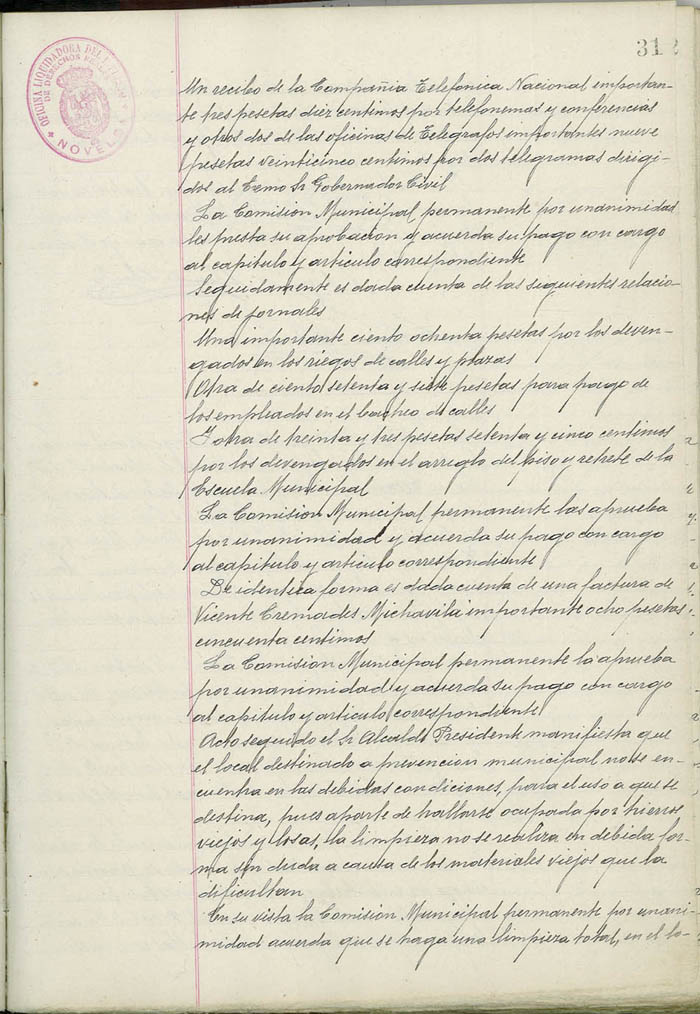 312
OFICINA LIQUIDADORA DEL
DE DERECHOS REALES
* NOVELDA
Un recibo de la Compañia Telefonica Nacional importan-
te tres pesetas diez centimos por telefonemas y conferencias
y otros dos de las oficinas de Telegrafos importantes nueve
pesetas veinticinco centimos por dos telegramas dirigi-
dos al Exmo Sr Gobernador Civil
La Comision Municipal permanente por unanimidad
les presta su aprobacion y acuerda su pago con cargo
al capitulo y articulo correspondiente
Seguidamente es dada cuenta de las siguientes relacio-
nes de jornales
Una importante ciento ochenta pesetas por los deven-
gados en los riegos de calles y plazas
Otra de ciento setenta y siete pesetas para pago de
los empleados en el bacheo de calles
Y otra de treinta y tres pesetas setenta y cinco centimos
por los devengados en el arreglo del piso y retrete de la
Escuela Municipal
La Comision Municipal permanente las aprueba
por unanimidad y acuerda su pago con cargo
al capitulo y articulo correspondiente
De identica forma es dada cuenta de una factura de
Vicente Cremades Michavila importante ocho pesetas
cincuenta centimos
La Comision Municipal permanente la aprueba
por unanimidad y acuerda su pago con cargo
al capitulo y articulo correspondiente
Acto seguido el Sr Alcalde Presidente manifiesta que
el local destinado a prevencion municipal no se en-
cuentra en las debidas condiciones, para el uso a que se
destina, pues aparte de hallarse ocupada por hierros
viejos y losas, la limpieza no se realiza en debida for-
ma sin duda a causa de los materiales viejos que la
dificultan
En su vista la Comision Municipal permanente por unani-
midad acuerda que se haga una limpieza total, en el lo-